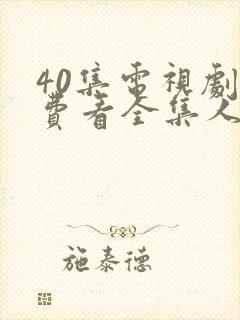 40集電視劇
費看全集人
施泰德